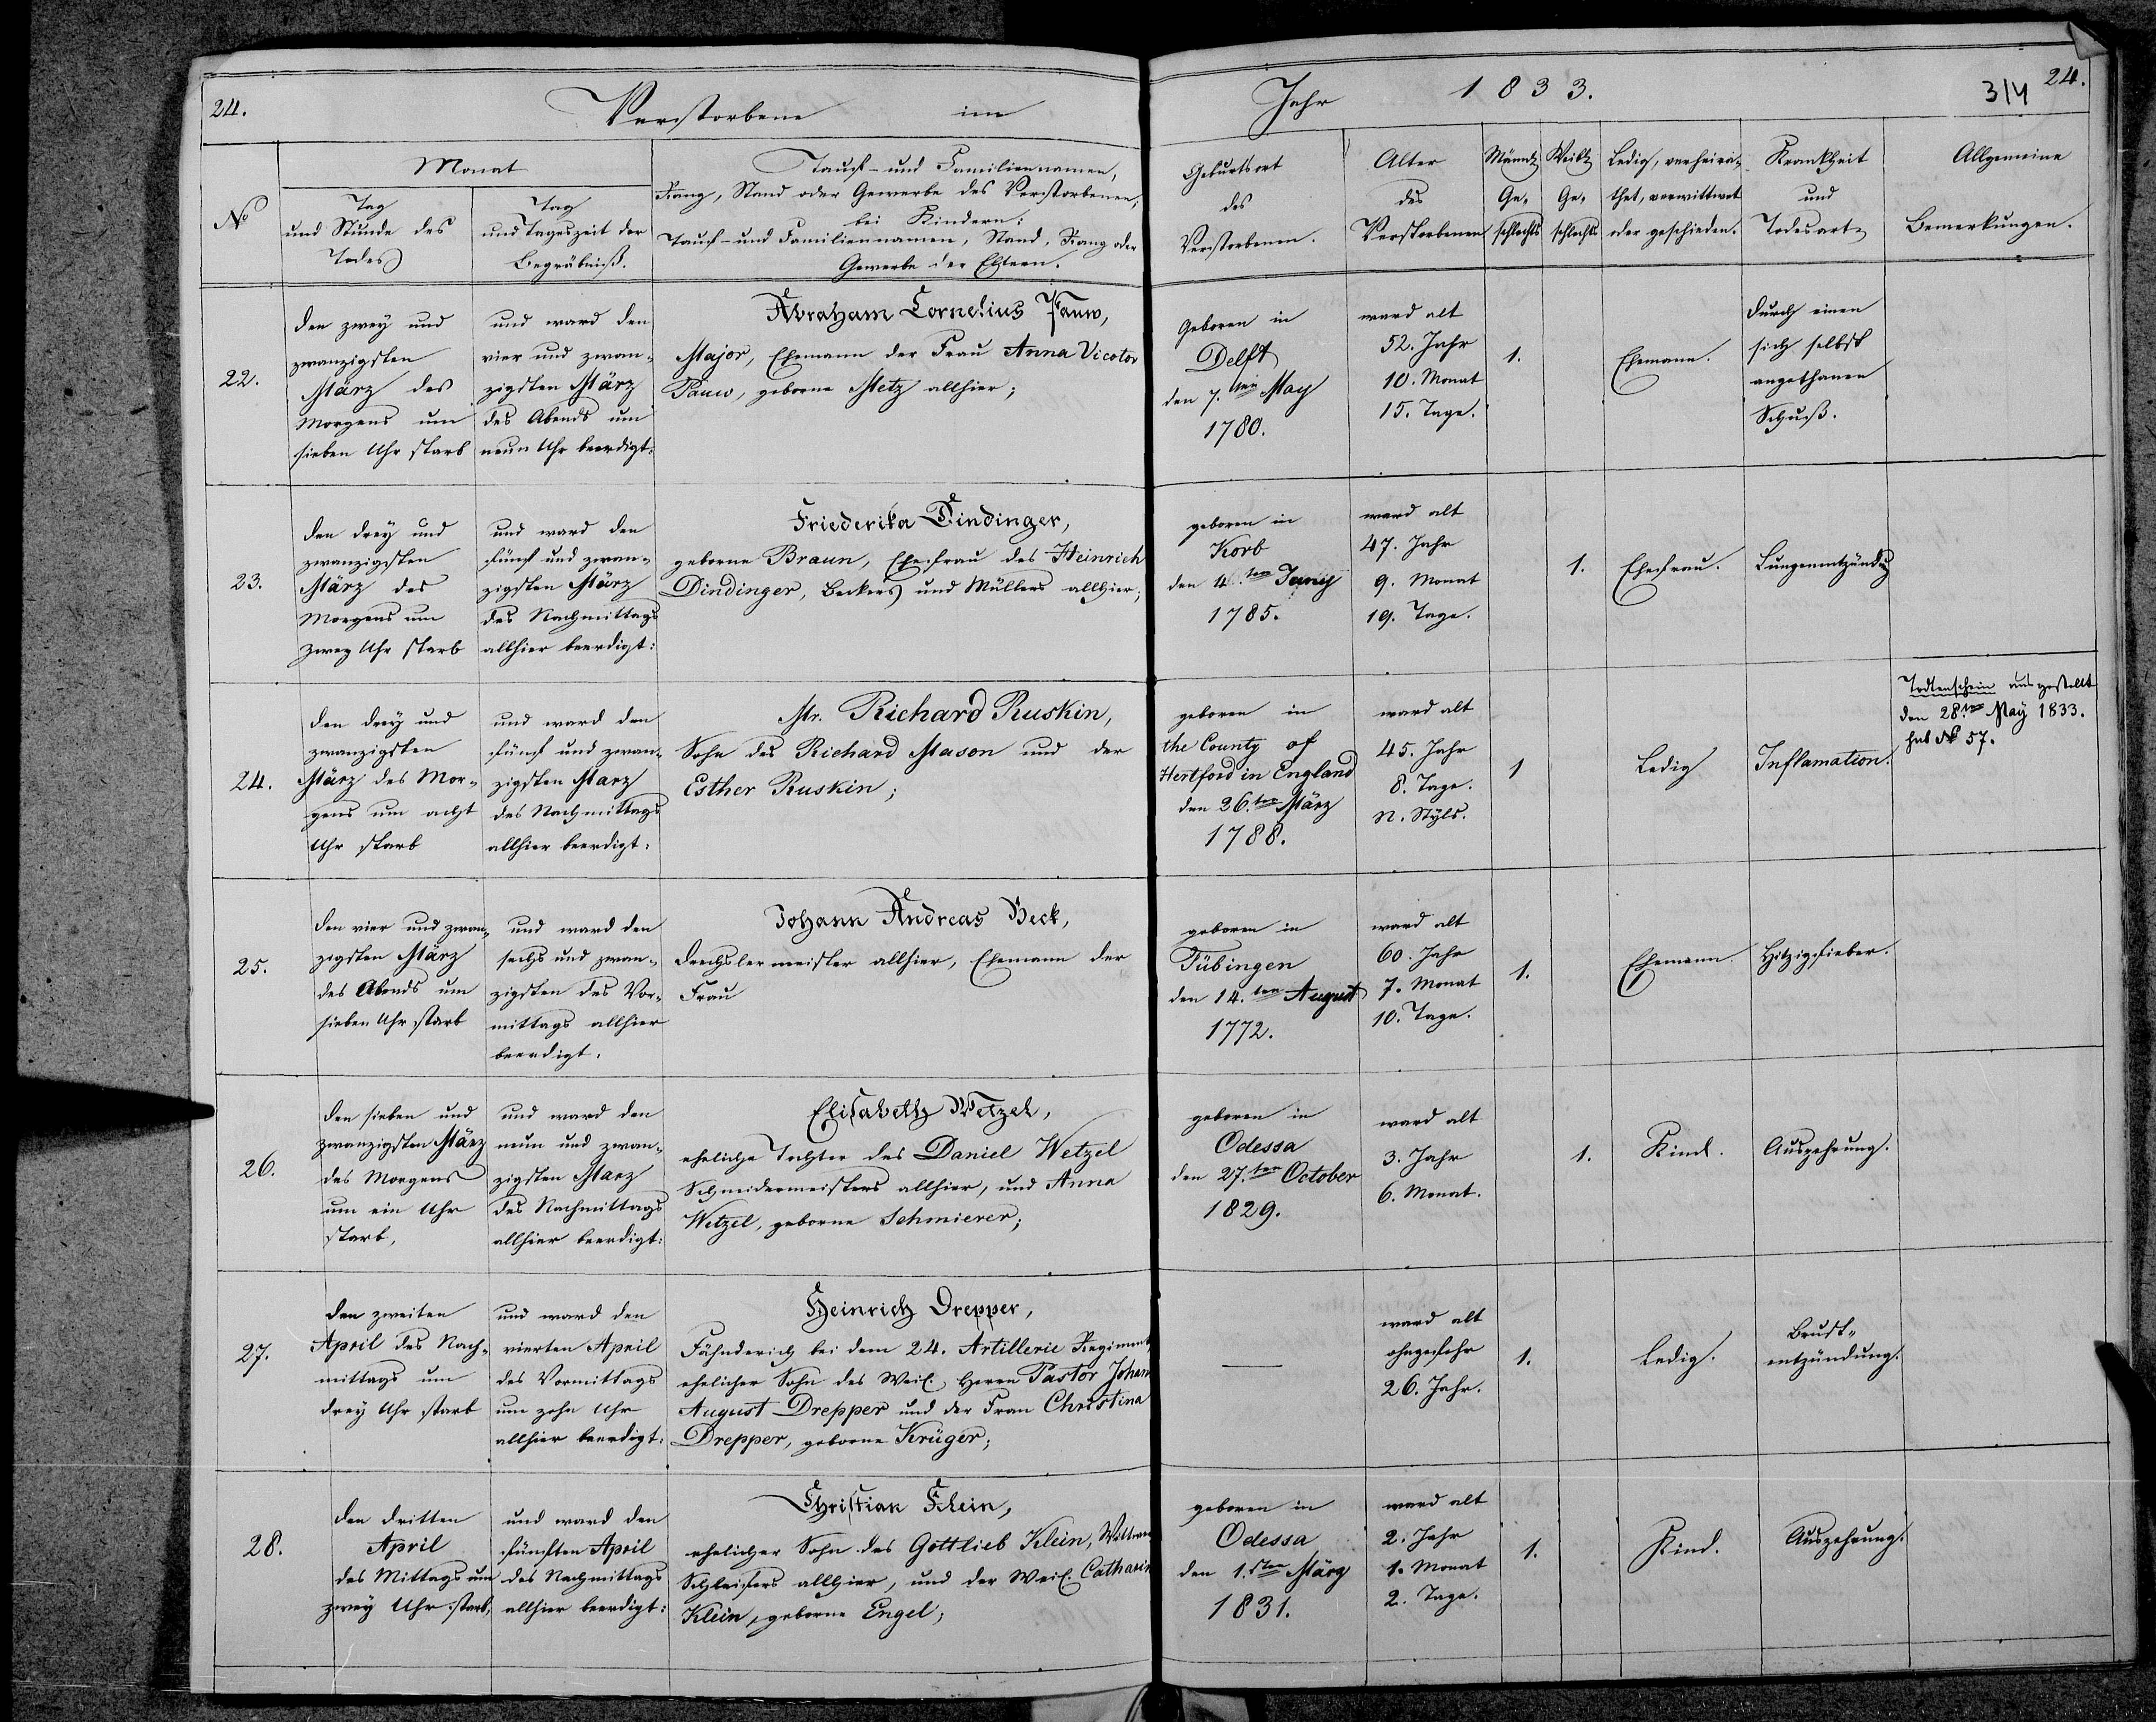 24.
Verstorbene im
Jahr 1833.
3/4
24.
№
Monat
Tag
und Stunde des
Todes
Tag
und Tageszeit der
Begräbniß.
Tauf- und Familiennamen,
Rang, Stand oder Gewerbe des Verstorbenen,
bei Kindern:
Tauf- und Familiennamen, Stand, Rang oder
Gewerbe der Eltern.
Geburtsort
des
Verstorbenen.
Alter
des
Verstorbenen
Männl.
Ge-
schlechts
Weibl.
Ge-
schlechts
Ledig, verheira-
thet, verwittwet
oder geschieden.
Krankheit
und
Todesart
Allgemeine
Bemerkungen.
22.
den zwey und
zwanzigsten
März des
Morgens um
sieben Uhr starb
und ward den
vier und zwan-
zigsten März
des Abends um
neun Uhr beerdigt:
Abraham Cornelius Pauw,
Major, Ehemann der Frau Anna Vicotor
Pauw, geborne Metz allhier;
Geboren in
Delft
den 7.ten May
1780.
ward alt
52. Jahr
10. Monat
15. Tage.
1.
Ehemann.
durch einen
sich selbst
angethanen
Schuß.
23.
den drey und
zwanzigsten
März des
Morgens um
zwey Uhr starb
und ward den
fünf und zwan-
zigsten März
des Nachmittags
allhier beerdigt:
Friederika Dindinger,
geborne Braun, Ehefrau des Heinrich
Dindinger, Beckers und Müllers allhier;
geboren in
Korb
den 4.ten Juny
1785.
ward alt
47. Jahr
9. Monat
19. Tage.
1.
Ehefrau.
Lungenentzündg
24.
den drey und
zwanzigsten
März des Mor-
gens um acht
Uhr starb
und ward den
fünf und zwan-
zigsten Marz
des Nachmittags
allhier beerdigt:
Mr. Richard Ruskin,
Sohn des Richard Mason und der
Esther Ruskin;
geboren in
the County of
Hertford in England
den 26.ten März
1788.
ward alt
45. Jahr
8. Tage.
n. Styls.
1
Ledig
Inflamation.
Todtenschein ausgestellt
den 28.ten May 1833.
sub № 57.
25.
den vier und zwan-
zigsten März
des Abends um
sieben Uhr starb
und ward den
sechs und zwan-
zigsten des Vor-
mittags allhier
beerdigt.
Johann Andreas Beck,
Drechslermeister allhier, Ehemann der
Frau
geboren in
Tübingen
den 14.ten August
1772.
ward alt
60. Jahr
7. Monat
10. Tage.
1.
Ehemann.
Hitzigfieber.
26.
den sieben und
zwanzigsten März
des Morgens
um ein Uhr
starb,
und ward den
neun und zwan-
zigsten Marz
des Nachmittags
allhier beerdigt:
Elisabeth Wetzel,
eheliche Tochter des Daniel Wetzel
Schneidermeisters allhier, und Anna
Wetzel, geborne Schmierer;
geboren in
Odessa
den 27.ten October
1829.
ward alt
3. Jahr
6. Monat.
1.
Kind.
Auszehrung.
27.
den zweiten
April des Nach-
mittags um
drey Uhr starb
und ward den
vierten April
des Vormittags
um zehn Uhr
allhier beerdigt:
Heinrich Drepper,
Fähnderich bei dem 24. Artillerie Regiment,
ehelicher Sohn des Weil. Herrn Pastor Johann
August Drepper und der Frau Christina
Drepper, geborne Krüger;
ward alt
ohngefehr
26. Jahr.
1.
Ledig.
Brust-
entzündung.
28.
den dritten
April
des Mittags um
zwey Uhr starb;
und ward den
fünften April
des Nachmittags
allhier beerdigt:
Christian Klein,
ehelicher Sohn des Gottlieb Klein,
Schleifers allhier, und der Weil. Catharin
Klein, geborne Engel;
geboren in
Odessa
den 1.sten März
1831.
ward alt
2. Jahr
1. Monat
2. Tage.
1.
Kind.
Auszehrung.